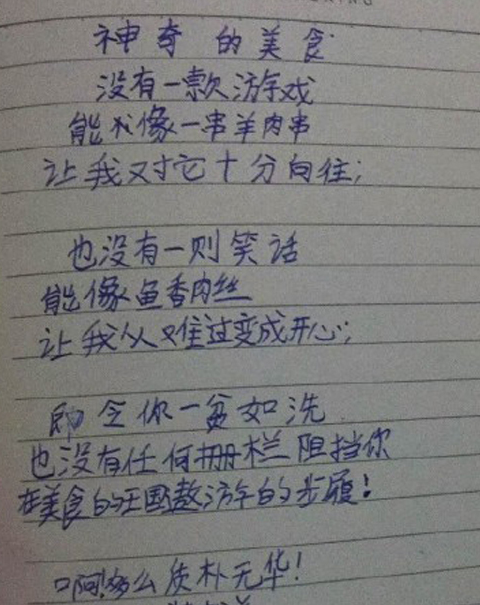 神奇的美食
没有一款游戏
能像一串羊肉串
让我对它十分向往;

也没有一则笑话
能像鱼香肉丝
让我从难过变成开心;

即令你一贫如洗
也没有任何栅栏阻挡你
在美食的王国遨游的步履!

啊!多么质朴无华!